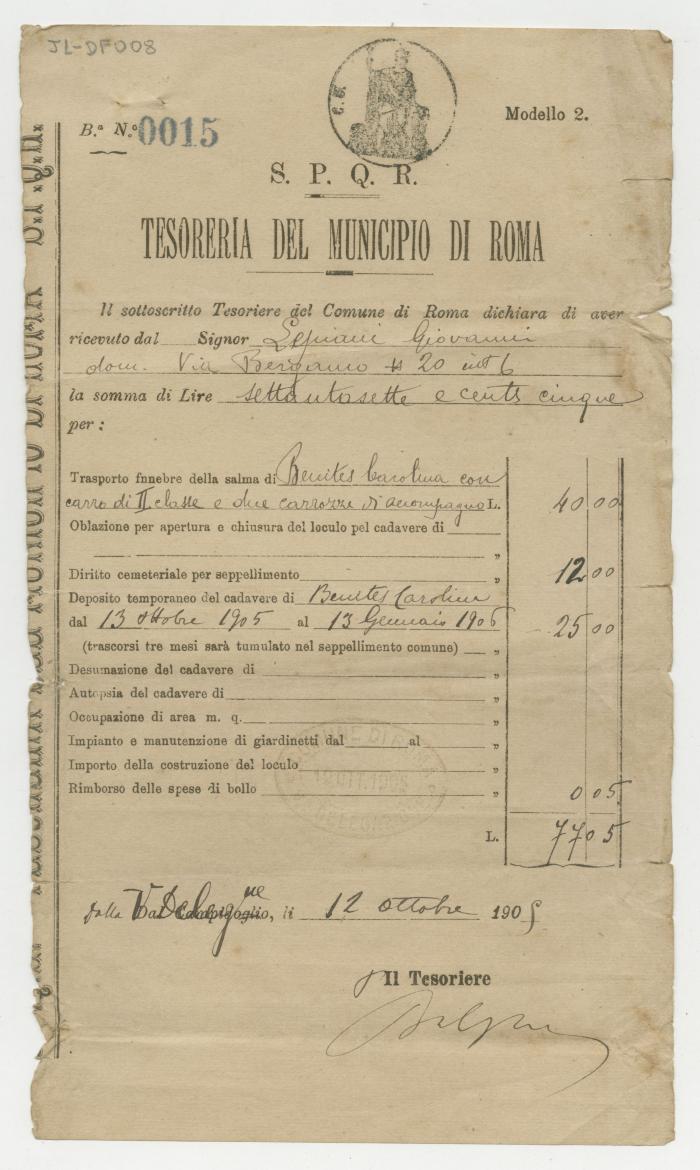 JL-DF008
B.a N.o 0015
Modello 2.
S. P. Q. R.
TESORERIA DEL MUNICIPIO DI ROMA
Il sottoscritto Tesoriere del Comune di Roma dichiara di aver
ricevuto dal Signor Giovanni
dom. Via Bergamo 20 int 6
la somma di Lire settantasette e cents cinque
per:
Trasporto funebre della salma di Benites Carolina con
carro di II classe e due carrozze di accompagno L. 40 00
Oblazione per apertura e chiusura del loculo pel cadavere di
"
Diritto cemeteriale per seppellimento " 12 00
Deposito temporaneo del cadavere di Benites Carolina
dal 13 ottobre 1905 al 13 Gennaio 1906 25 00
(trascorsi tre mesi sarà tumulato nel seppellimento comune) "
Desumazione del cadavere di "
Autopsia del cadavere di "
Occupazione di area m. q. "
Impianto e manutenzione di giardinetti dal al "
Importo della costruzione del loculo "
Rimborso delle spese di bollo " 0 05
L. 77 05
Dalla V Deleg.ne, li 12 ottobre 1905
Il Tesoriere